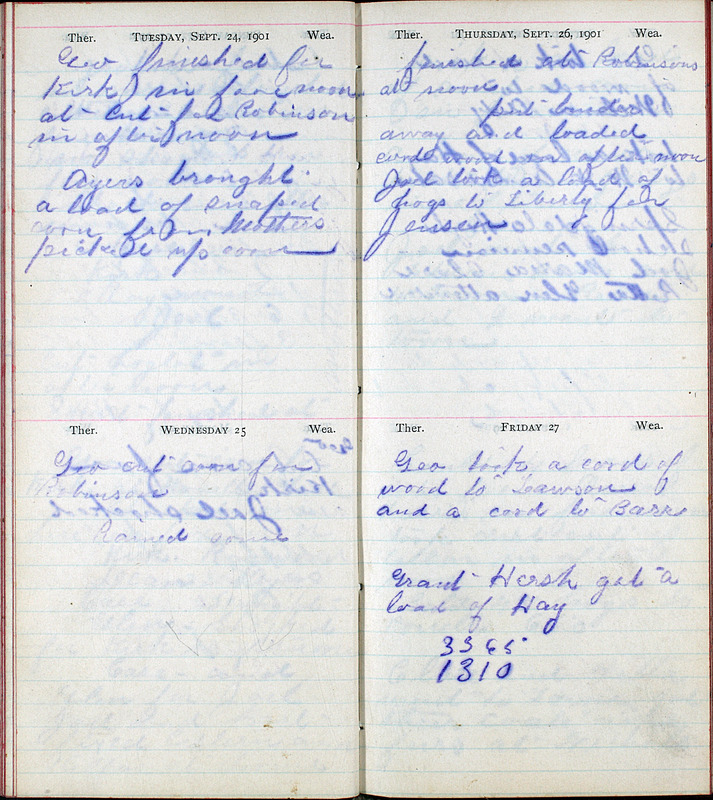 Ther. TUESDAY, SEPT. 24, 1901 Wea.
Geo finished for
Kirk in fore noon
at cut for Robinson
in after noon
Ayers brought
a load of snaped
corn from Mothers
picked up corn
Ther. WEDNESDAY 25 Wea.
Geo cut corn for
Robinson
Rained some
Ther. THURSDAY, SEPT. 26, 1901 Wea.
finished at Robinsons
at noon
put binder
away and loaded
cord wood in after noon
Joel took a load of
hogs to Liberty for
Jensen
Ther. FRIDAY 27 Wea.
Geo took a cord of
wood to Lawson
and a cord to Barr
Grant Hersh got a
load of Hay
3365
1310